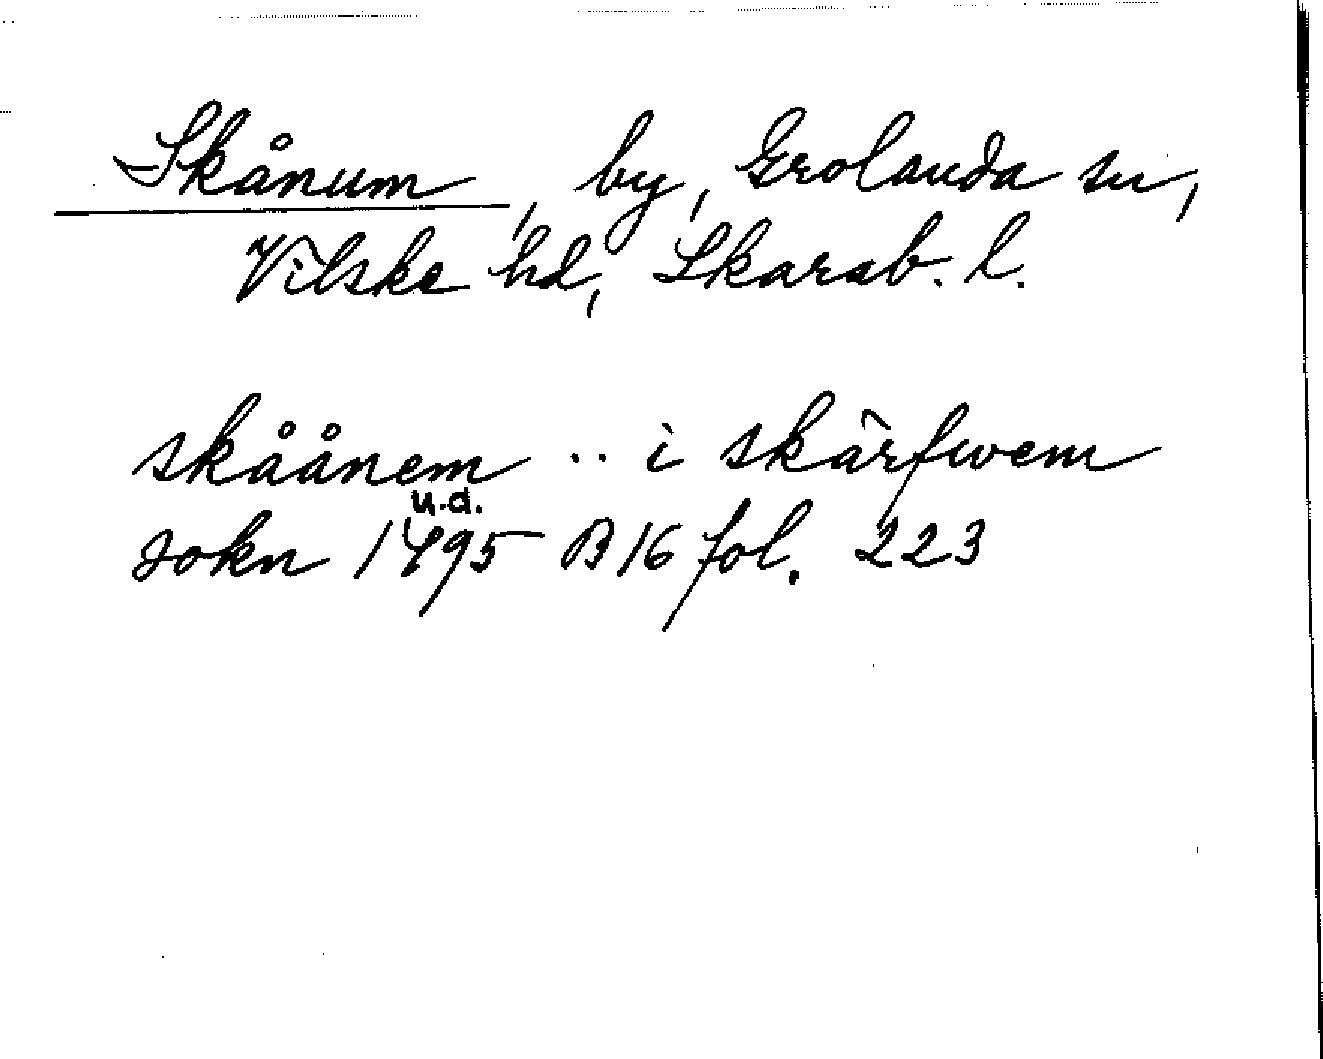 Skånum, by, Grolanda sn,
Vilske hd, Skarab. l.
skåånem .. i skärfwem
u.d.
sokn 1495 B16 fol. 223